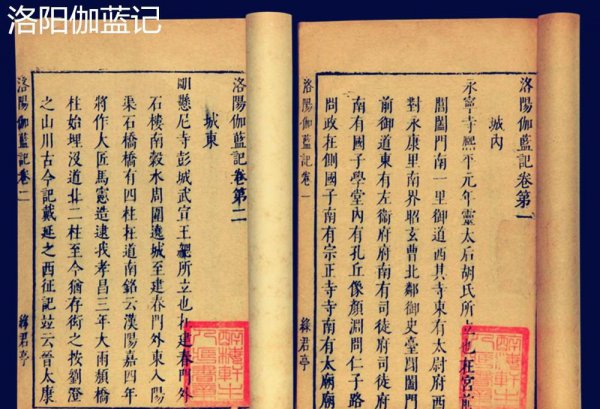 洛阳伽蓝记
洛陽伽藍記卷第一
城內
永寧寺熙平元年靈太后胡氏所立也在宮前
閶闔門南一里御道西其寺東有太尉府西
對永康里南界昭玄曹北鄰御史臺閶闔門
前御道東有左衛府府南有司徒府司徒府
南有國子學堂內有孔丘像顏淵問仁子路
問政在側國子南有宗正寺寺南有太廟廟
洛陽伽藍記 卷一 綠君亭
洛陽伽藍記卷第二
城東
明懸尼寺彭城武宣王勰所立也在建春門外
石樓南穀水周圍遶城至建春門外東入陽
渠石橋橋有四柱在道南銘云漢陽嘉四年
將作大匠馬憲造逮我孝昌三年大雨頹橋
柱始埋沒道北二柱至今猶存衒之按劉澄
之山川古今記戴延之西征記竝云晉太康
洛陽伽藍記 卷二 綠君亭